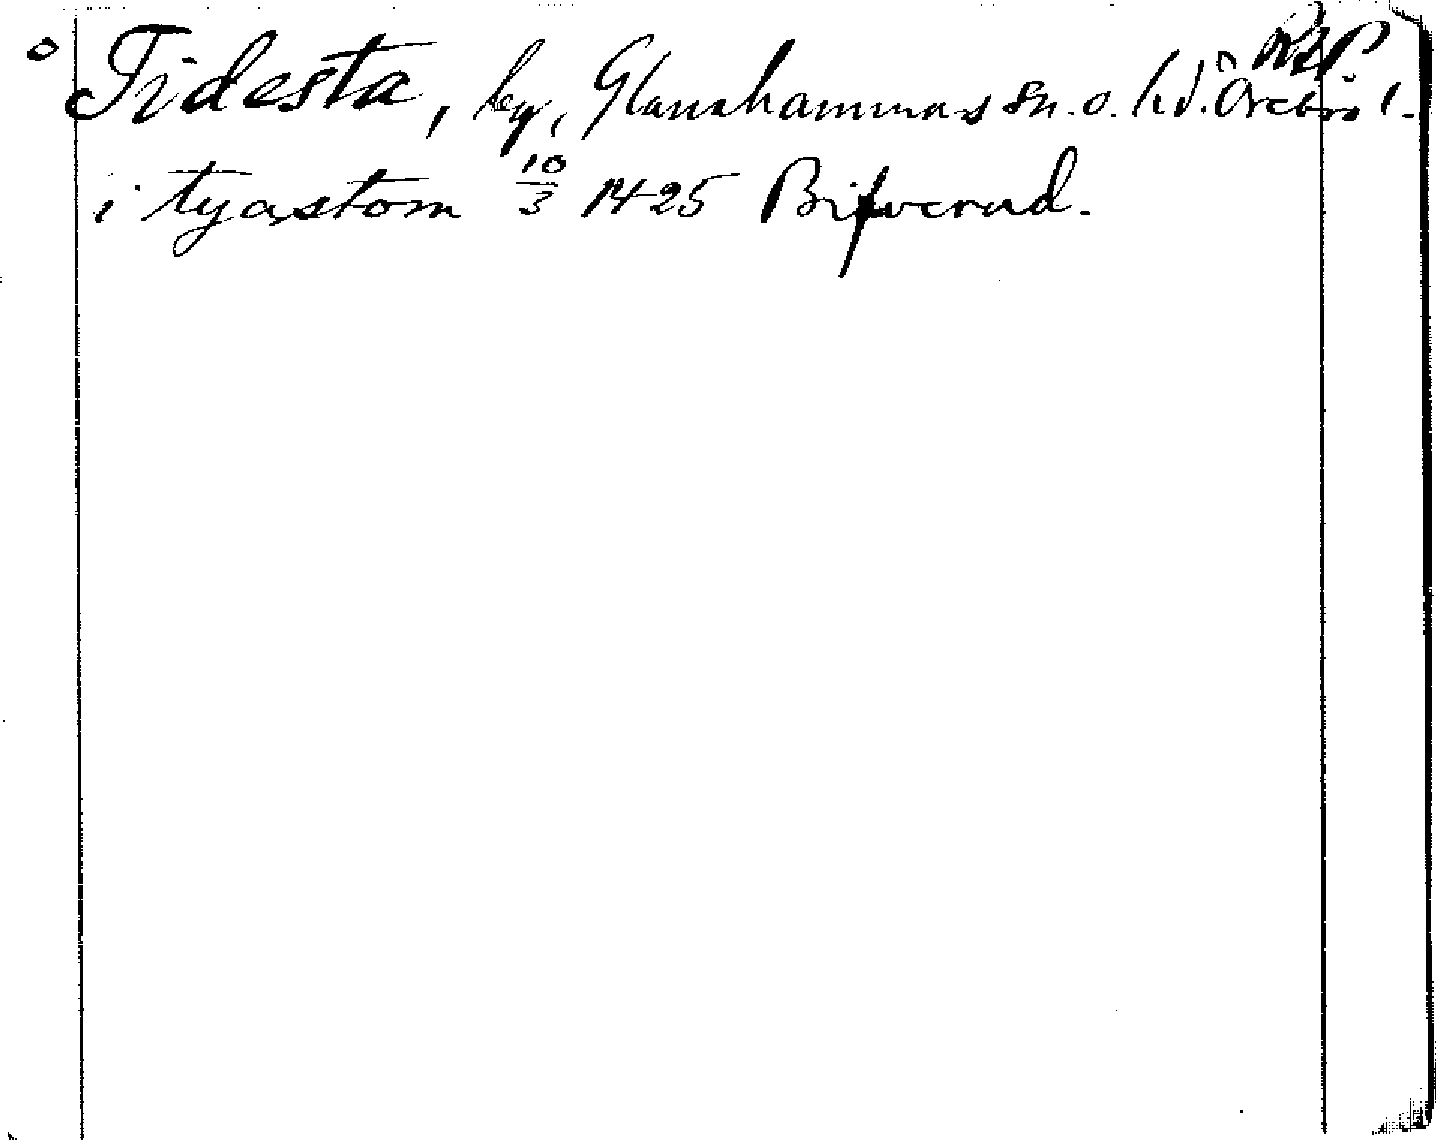 Tidesta, by, Glanshammars sn. o. hd. Örebro l.
i tyastom 10/3 1425 Bifverud.